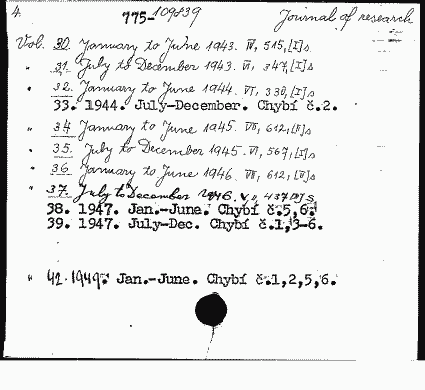 4. 775-109839 Journal of research
Vol. 30. January to June 1943. IV, 515, [I] s
" 31. July to December 1943. VI, 347, [I] s
" 32. January to June 1944. VI, 330, [I] s
33. 1944. July-December. Chybí č.2.
" 34 January to June 1945. VII, 612, [II] s
" 35. July to December 1945. VI, 567, [I] s
" 36. January to June 1946. VII, 612, [II] s
" 37. July to December 1946. V, 437 [I] s
38. 1947. Jan.-June. Chybí č.5,6.
39. 1947. July-Dec. Chybí č.1,3-6.
" 42. 1949. Jan.-June. Chybí č.1,2,5,6.